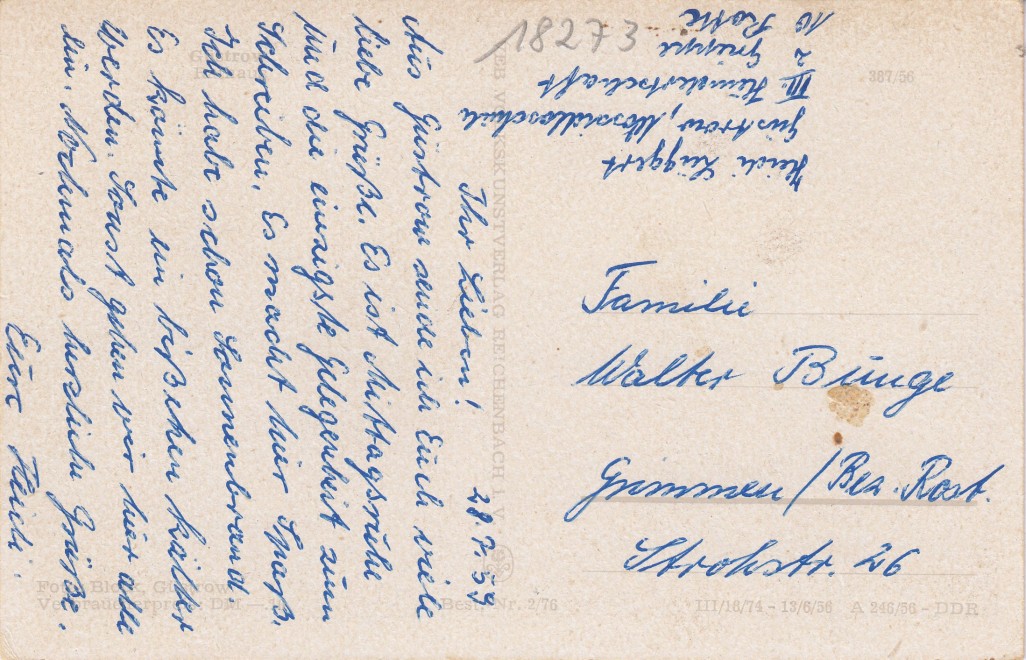 18273
Heidi Lüggert
Güstrow, Wossidloschule
III. Hundertschaft
2 Gruppe
10 Rotte
Güstrow
Rathaus
387/56
28. 7. 59
Ihr Lieben!
Aus Güstrow sende ich Euch viele
liebe Grüße. Es ist Mittagsruhe
und die einzigste Gelegenheit zum
schreiben. Es macht hier Spaß.
Ich habe schon Sonnenbrand
Es könnte ein bißchen kälter
werden. Sonst gehen wir hier alle
ein. Nochmals herzliche Grüße.
Eure Heidi.
VEB VOLKSKUNSTVERLAG REICHENBACH I. V.
Familie
Walter Bunge
Grimmen/Bez. Rost.
Strohstr. 26
Foto Block, Güstrow
Verbraucherpreis DM
Best. Nr. 2/76
III/16/74 - 13/6/56 A 246/56 - DDR